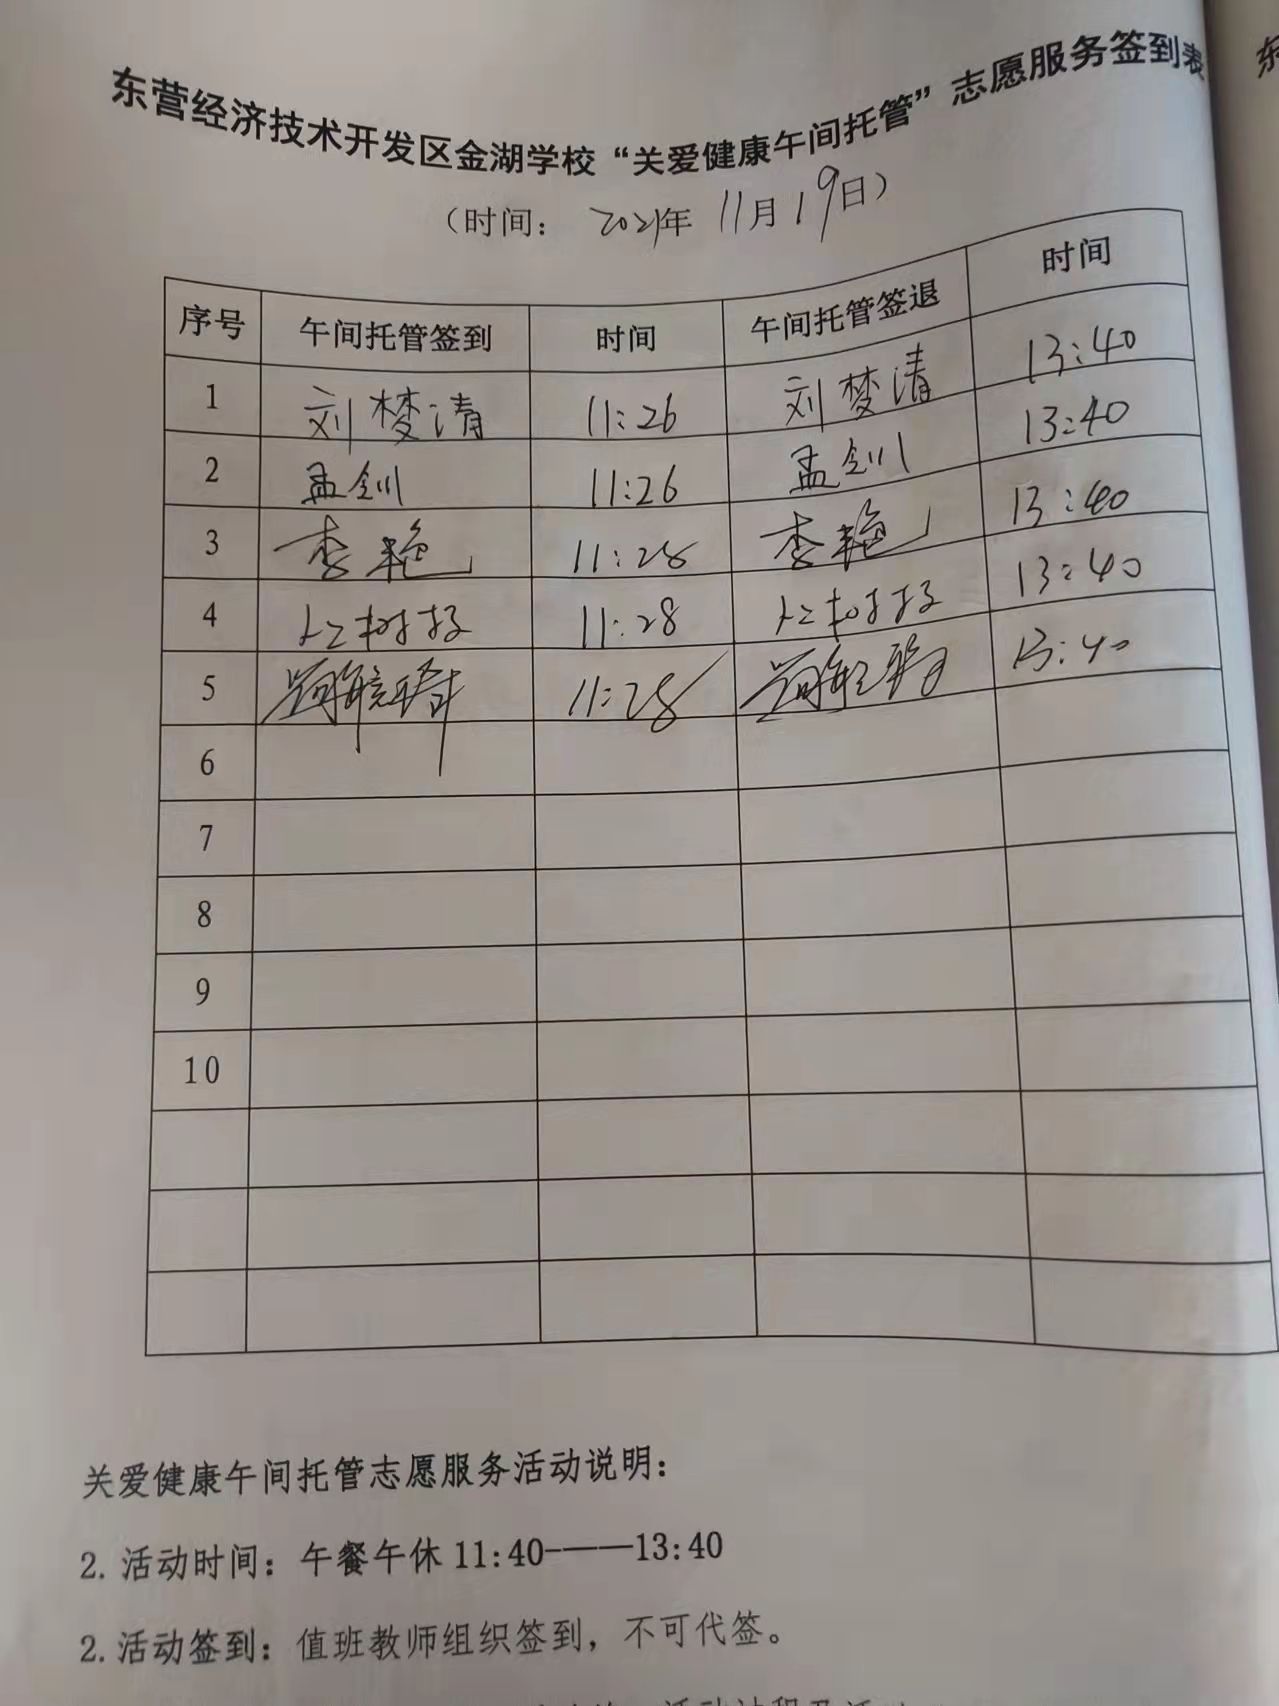 东营经济技术开发区金湖学校“关爱健康午间托管”志愿服务签到表
（时间： 2021年 11月19日）
序号 午间托管签到 时间 午间托管签退 时间
1 刘梦清 11:26 刘梦清 13:40
2 孟钏 11:26 孟钏 13:40
3 李艳 11:28 李艳 13:40
4 11:28 13:40
5 11:28 13:40
6
7
8
9
10
关爱健康午间托管志愿服务活动说明：
2. 活动时间：午餐午休 11:40-——13:40
2. 活动签到：值班教师组织签到，不可代签。